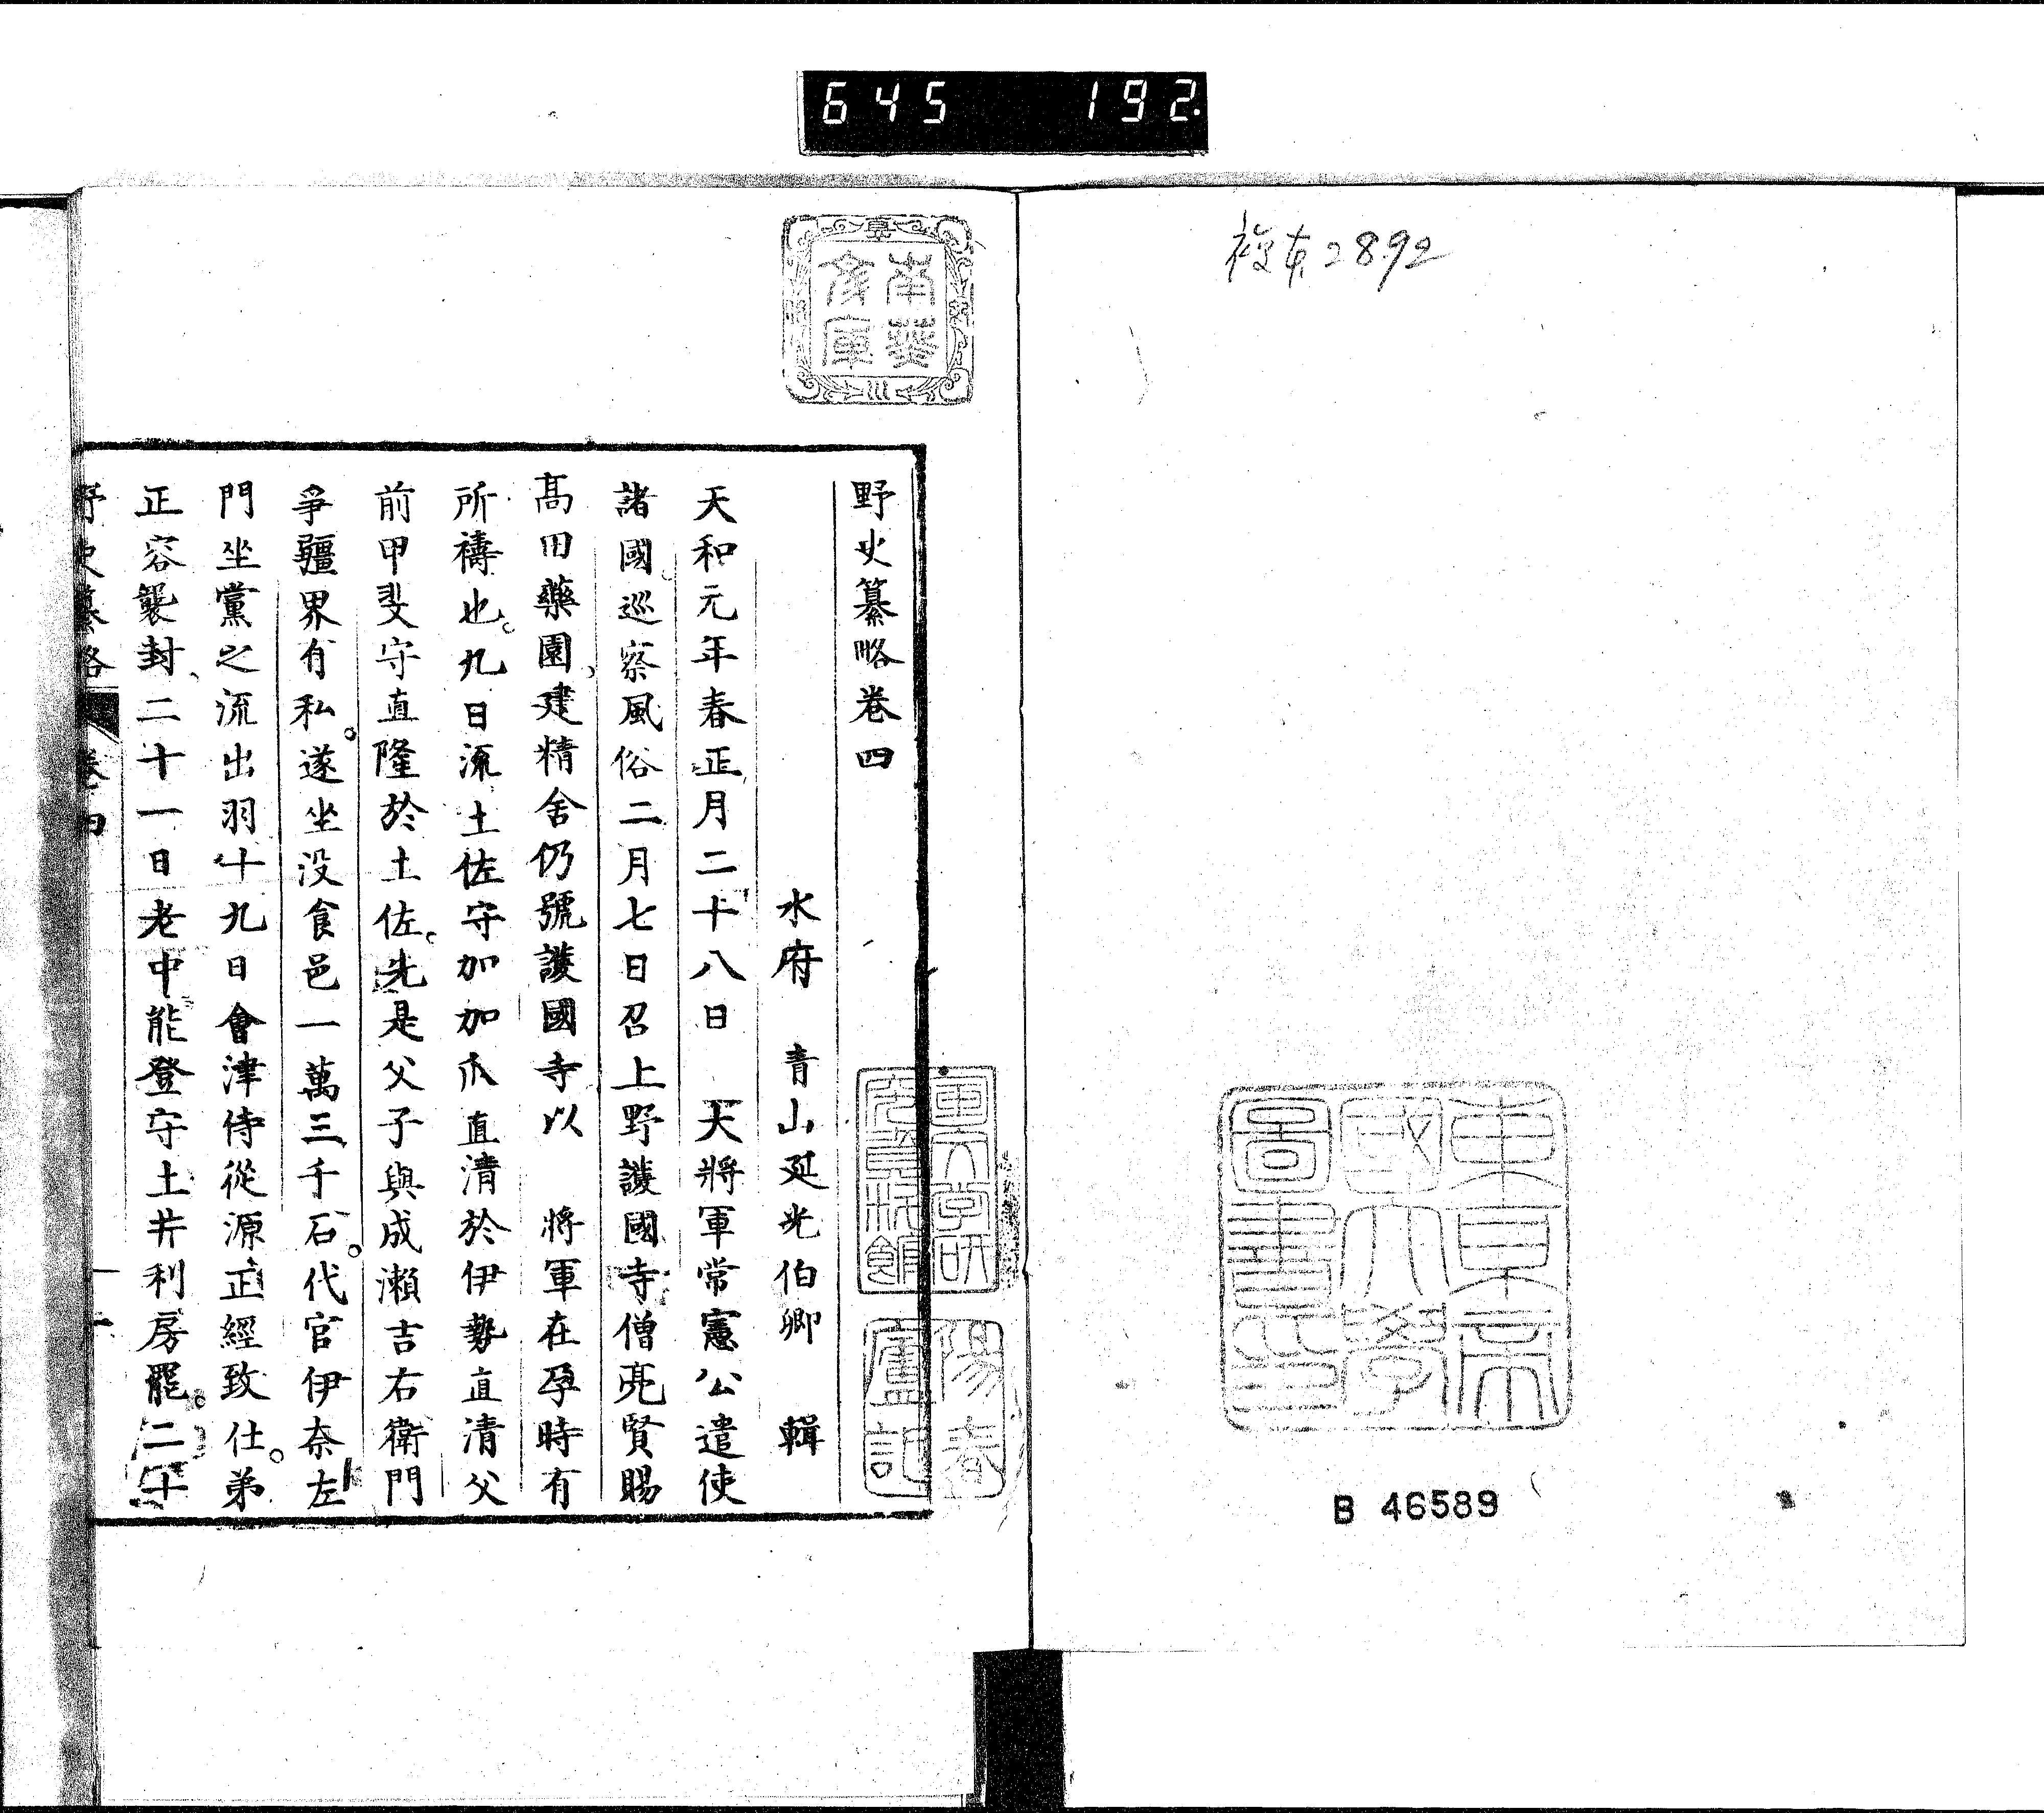 645 192.
複東2892
東京帝
國大學
圖書印
B 46589
南葵
文庫
陽春
廬記
野史纂略卷四
水府 青山延光伯卿 輯
天和元年春正月二十八日 大將軍常憲公遣使
諸國巡察風俗二月七日召上野護國寺僧亮賢賜
高田藥園建精舍仍號護國寺以 將軍在孕時有
所禱也九日流土佐守加加爪直清於伊勢直清父
前甲斐守直隆於土佐先是父子與成瀨吉右衛門
爭疆界有私遂坐沒食邑一萬三千石代官伊奈左
門坐黨之流出羽十九日會津侍從源正經致仕弟
正容襲封二十一日老中能登守土井利房罷二十
野史纂略 卷四 一